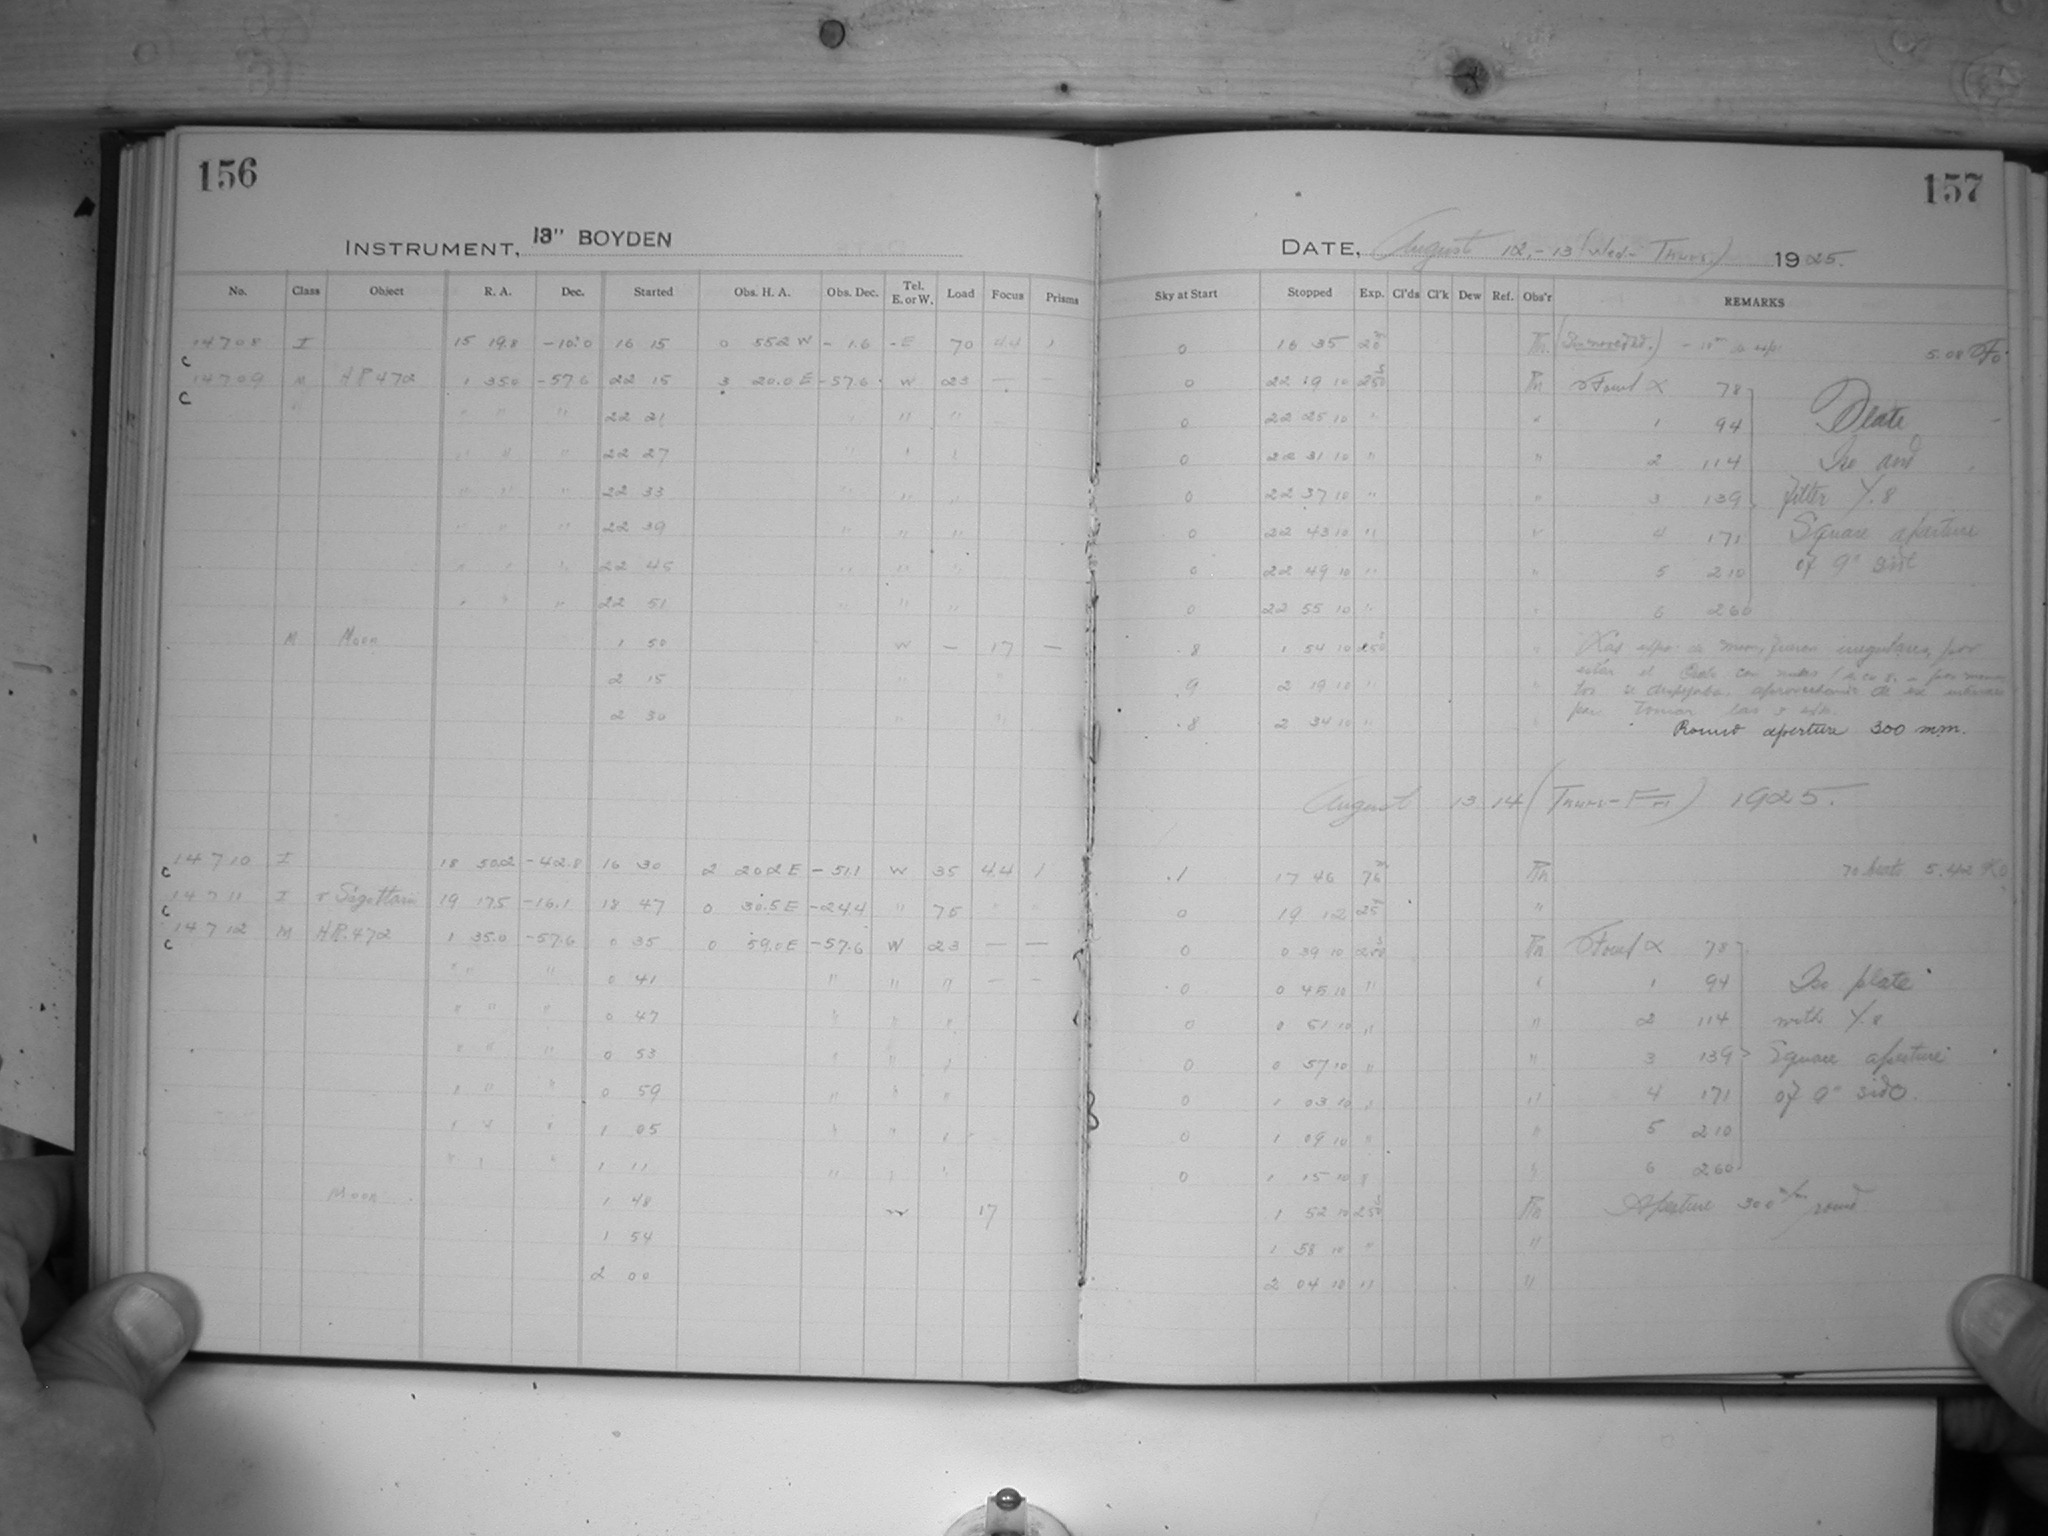 156
INSTRUMENT, 13" BOYDEN
No. Class Object R. A. Dec. Started Obs. H. A. Obs. Dec. Tel. E. or W. Load Focus Prisms
14708 I 15 19.8 -10.0 16 15 0 55.2 W - 1.6 - E 70 44 1
C
14709 M HR 472 1 35.0 -57.6 22 15 3 20.0 E -57.6 W 23 — —
C
" " " 22 21 " " "
" " " 22 27 " " "
" " " 22 33 " " "
" " " 22 39 " " "
" " " 22 45 " " "
" " " 22 51 " " "
M Moon 1 50 W — 17 —
2 15 " "
2 30 " "
14710 I 18 50.2 -42.8 16 30 2 20.2 E -51.1 W 35 44 1
C
14711 I r Sigottarii 19 17.5 -16.1 18 47 0 30.5 E -24.4 " 75 " "
C
14712 M HR.472 1 35.0 -57.6 0 35 0 59.0 E -57.6 W 23 — —
C
" " " 0 41 " " " — —
" " " 0 47 " " "
" " " 0 53 " " "
" " " 0 59 " " "
" " " 1 05 " " "
" " " 1 11 " " "
Moon 1 48 W 17
1 54
2 00
157
DATE, August 12,-13 (Wed- Thurs.) 1925.
Sky at Start Stopped Exp. Cl'ds Cl'k Dew Ref. Obs'r REMARKS
0 16 35 20m 5.08
0 22 19 10 250s 78
0 22 25 10 " " 1 94 Plate
0 22 31 10 " " 2 114 Iso and
0 22 37 10 " " 3 139 filter Y.8
0 22 43 10 " " 4 171 Square aperture
0 22 49 10 " " 5 210 of 9" side
0 22 55 10 " " 6 260
.8 1 54 10 250s " Las exp. de moon, fueron irregulares, por
.9 2 19 10 " " estar el
.8 2 34 10 " " por tomar las 3
Round aperture 300 mm.
August 13.14 (Thurs-Fri) 1925.
.1 17 46 76m 70 5.42
0 19 12 25m "
0 0 39 10 250s 78
0 0 45 10 " " 1 94 Iso plate
0 0 51 10 " " 2 114 with Y.8
0 0 57 10 " " 3 139 Square aperture
0 1 03 10 " " 4 171 of 9" side.
0 1 09 10 " " 5 210
0 1 15 10 " " 6 260
1 52 10 250s Aperture 300 m/m round
1 58 10 " "
2 04 10 " "